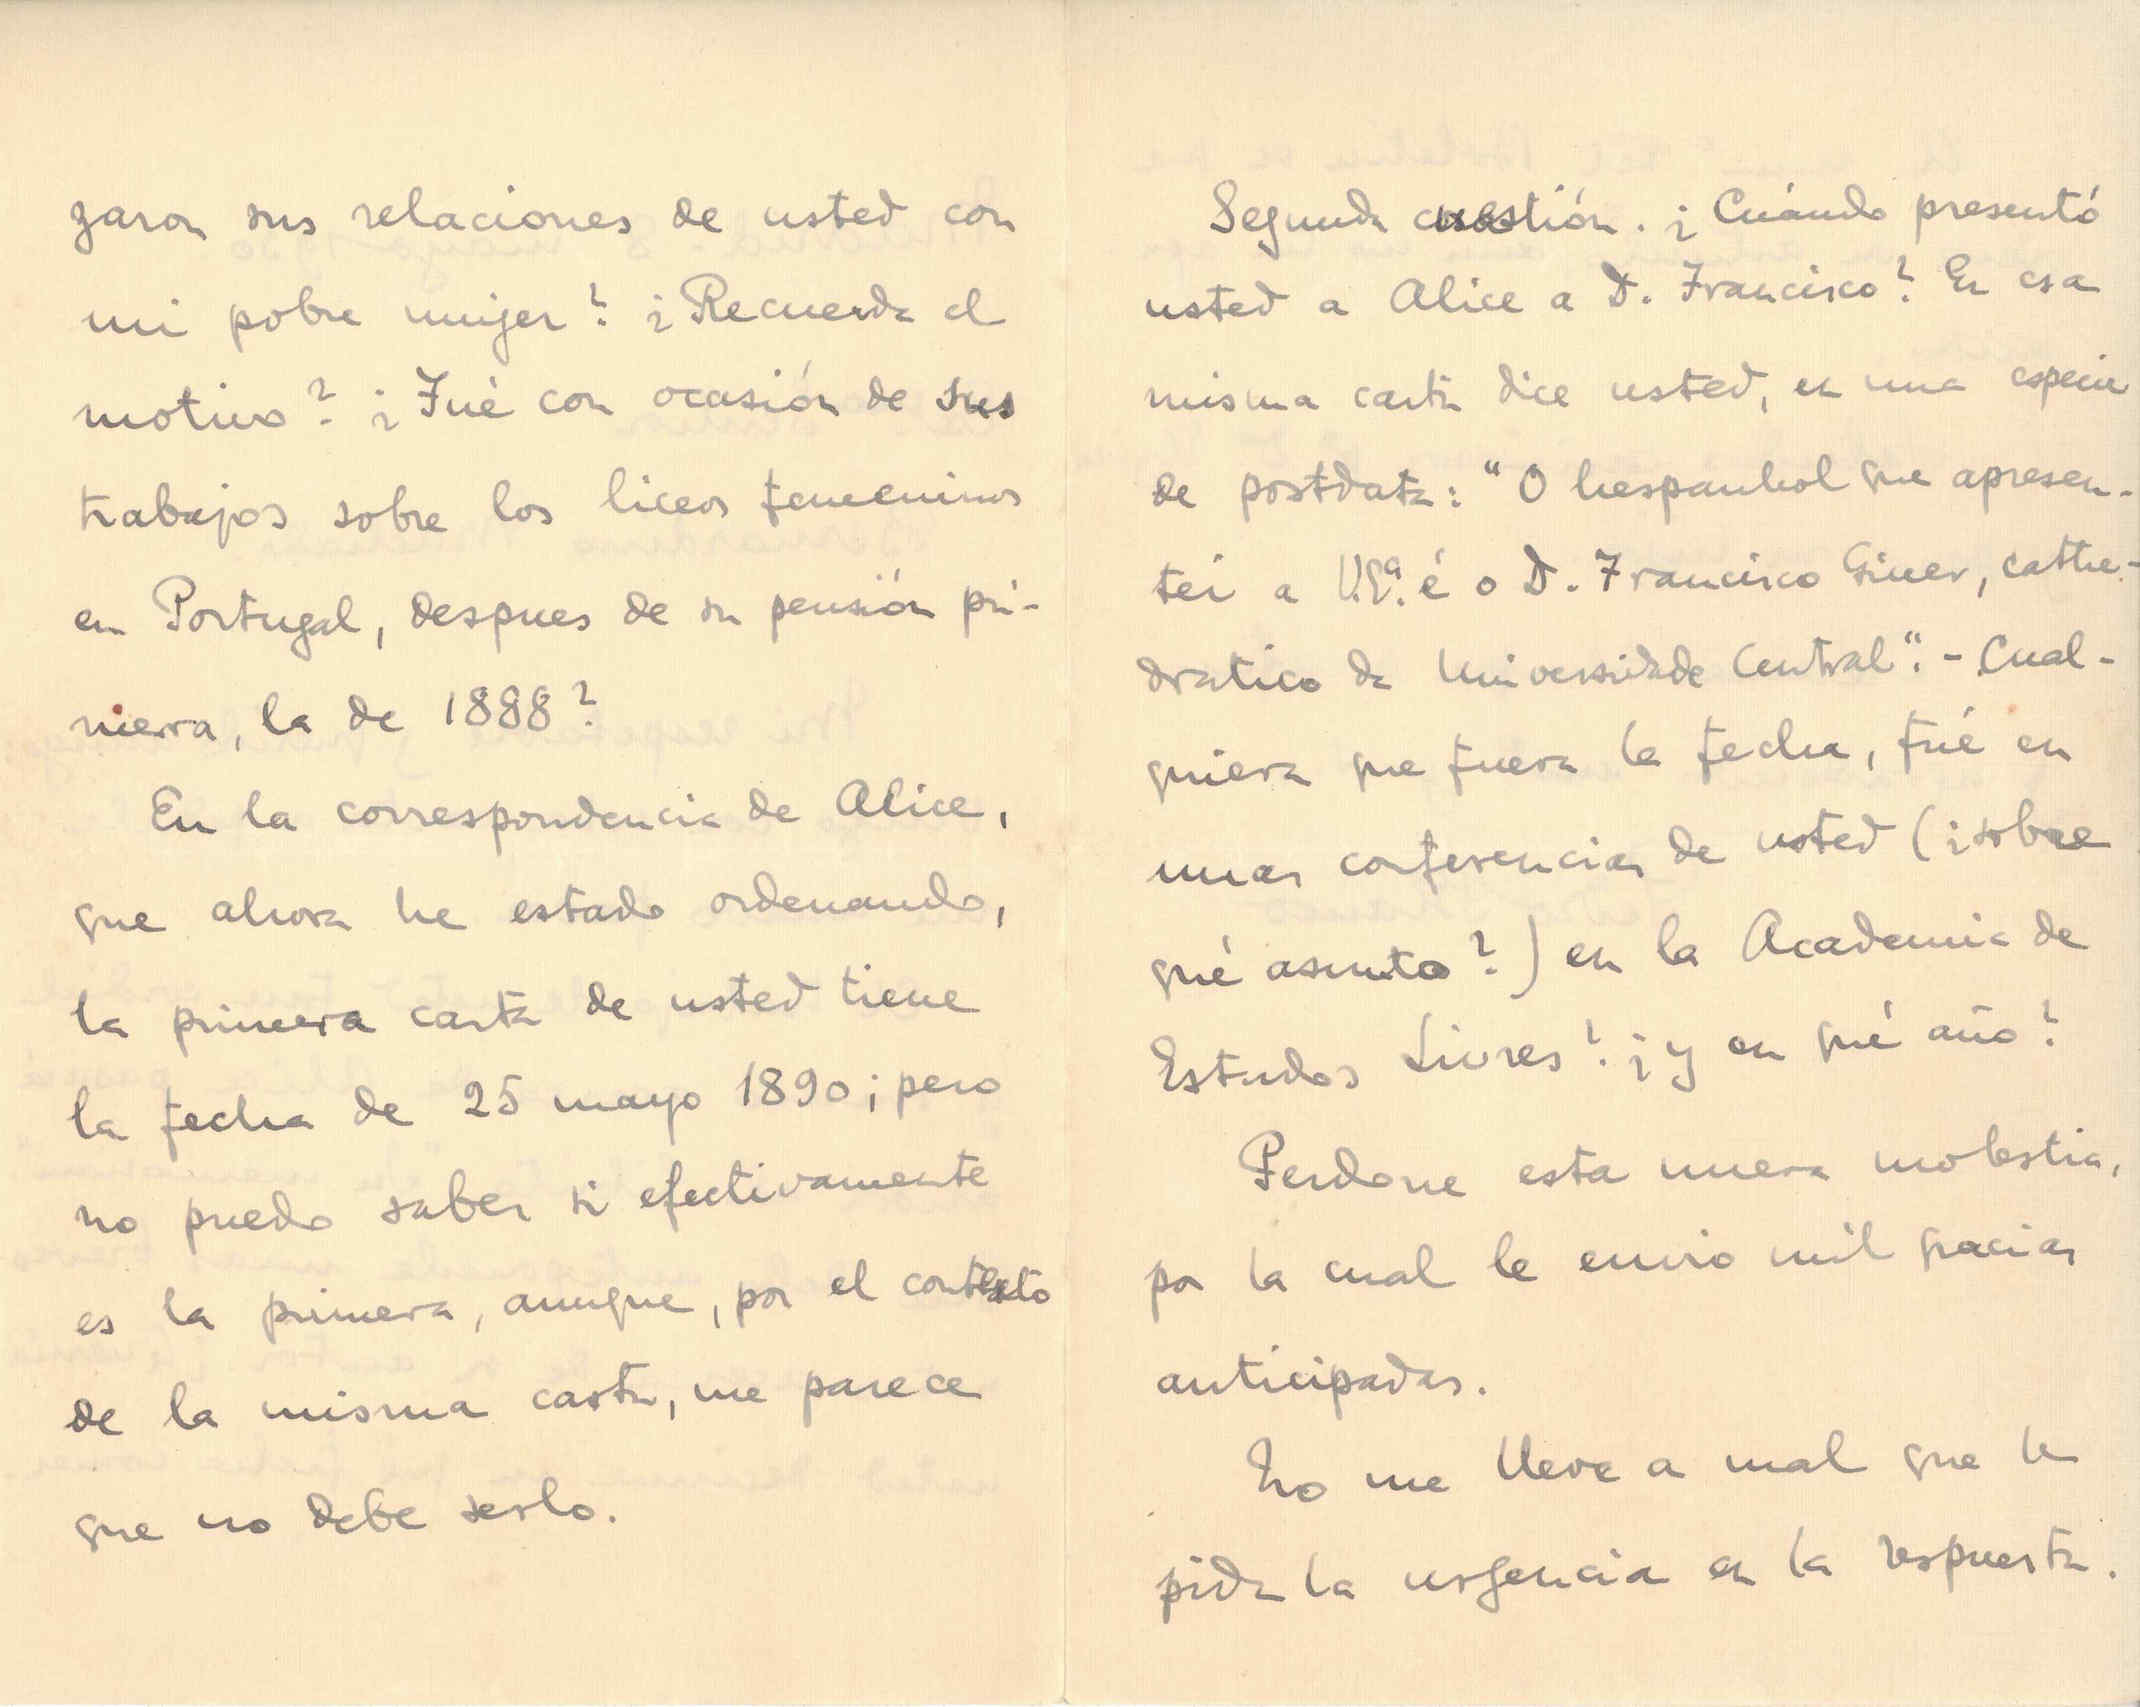 zaron sus relaciones de usted con
mi pobre mujer? ¿Recuerda el
motivo? ¿Fué con ocasión de sus
trabajos sobre los liceos femeninos
en Portugal, despues de su pensión pri-
mera, la de 1888?
En la correspondencia de Alice,
que ahora he estado ordenando,
la primera carta de usted tiene
la fecha de 25 mayo 1890; pero
no puedo saber si efectivamente
es la primera, aunque, por el contexto
de la misma carta, me parece
que no debe serlo.
Segunda cuestión. ¿Cuándo presentó
usted a Alice a D. Francisco? En esa
misma carta dice usted, en una especie
de postdata: "O hespanhol que apresen-
tei a V. Eª. é o D. Francisco Giner, cathe-
dratico da Universidade Central". - Cual-
quiera que fuera la fecha, fué en
unas conferencias de usted (¿sobre
qué asunto?) en la Academia de
Estudos Livres? ¿y en qué año?
Perdone esta nueva molestia,
por la cual le envio mil gracias
anticipadas.
No me lleve a mal que le
pida la urgencia en la respuesta.